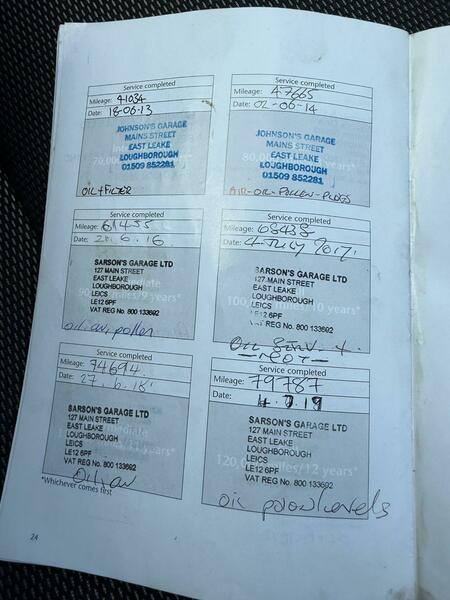 Service completed
Mileage: 41034
Date: 18-06-13
JOHNSON'S GARAGE
MAINS STREET
EAST LEAKE
LOUGHBOROUGH
01509 852281
OIL + FILTER
Service completed
Mileage: 47665
Date: 02-06-14
JOHNSON'S GARAGE
MAINS STREET
EAST LEAKE
LOUGHBOROUGH
01509 852281
AIR-OIL-POLLEN-PLUGS
Service completed
Mileage: 61455
Date: 21.6.16
SARSON'S GARAGE LTD
127 MAIN STREET
EAST LEAKE
LOUGHBOROUGH
LEICS
LE12 6PF
VAT REG No. 800 133692
oil air pollen
Service completed
Mileage: 68438
Date: 4 July 2017.
SARSON'S GARAGE LTD
127 MAIN STREET
EAST LEAKE
LOUGHBOROUGH
LEICS
LE12 6PF
VAT REG No. 800 133692
OIL SERV. +
-MOT-
Service completed
Mileage: 74694
Date: 27.6.18
SARSON'S GARAGE LTD
127 MAIN STREET
EAST LEAKE
LOUGHBOROUGH
LEICS
LE12 6PF
VAT REG No. 800 133692
Oil, air
Service completed
Mileage: 79787
Date: 4.7.19
SARSON'S GARAGE LTD
127 MAIN STREET
EAST LEAKE
LOUGHBOROUGH
LEICS
LE12 6PF
VAT REG No. 800 133692
120, miles/12 years*
oil levels
*Whichever comes first
24